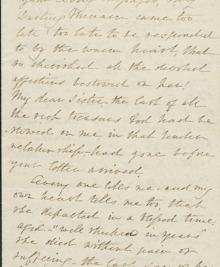 Darling Miriam came too
late - too late to be responded
to by the warm heart, that
so cherished all the devoted
affections bestowed on her!
My dear Sister - the last of all
the rich treasures God had be
stowed on me in that tender
relationship - had gone before
your letter arrived.
Every one tells me - and my
own heart tells me too, that
she departed in a blessed time.
aged - "well stricken in years"
she died without pain or
suffering - the